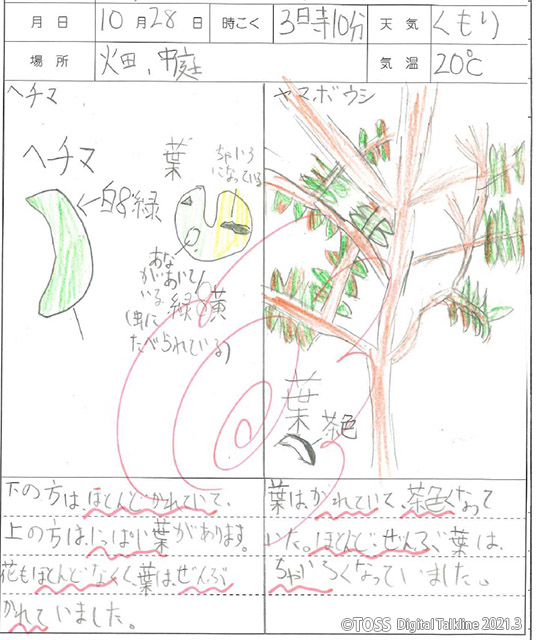 月 日 10月28日 時こく 3日寺10分 天 気 くもり
場 所 畑、中庭 気 温 20℃
ヘチマ
ヘチマ
白&緑
葉
ちゃいろ
になっている
あな
があいて
いる
(虫に
たべられている)
緑&黄
ヤマボウシ
葉
茶色
下の方は、ほとんどかれていて、
上の方は、いっぱい葉があります。
花もほとんどなくく葉は、ぜんぶ
かれていました。
葉は、かれていて、茶色くなって
いた。ほとんど、ぜんぶ葉は、
ちゃいろくなっていました。
©TOSS Digital Talkline 2021.3